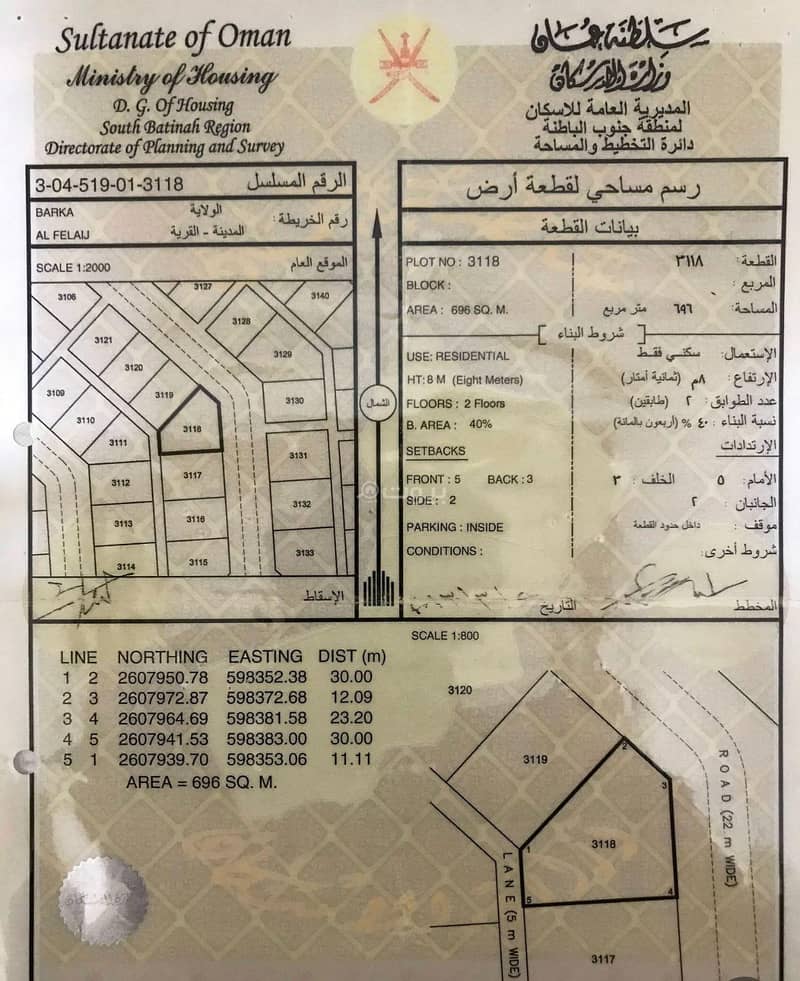 Sultanate of Oman
Ministry of Housing
D. G. Of Housing
South Batinah Region
Directorate of Planning and Survey
سلطنة عمان
وزارة الإسكان
المديرية العامة للاسكان
لمنطقة جنوب الباطنة
دائرة التخطيط والمساحة
3-04-519-01-3118 الرقم المسلسل
BARKA الولاية رقم الخريطة :
AL FELAIJ المدينة - القرية
SCALE 1:2000 الموقع العام
3106
3127
3140
3128
3121
3129
3120
3109
3119
3130
3110
3118
3111
3131
3117
3112
3132
3116
3113
3133
3115
3114
الإسقاط
الشمال
رسم مساحي لقطعة أرض
بيانات القطعة
PLOT NO : 3118 القطعة: ٣١١٨
BLOCK : المربع :
AREA : 696 SQ. M. المساحة: ٦٩٦ متر مربع
شروط البناء
USE: RESIDENTIAL الإستعمال: سكني فقط
HT: 8 M (Eight Meters) الإرتفاع : ٨م (ثمانية أمتار)
FLOORS : 2 Floors عدد الطوابق : ٢ (طابقين)
B. AREA : 40% نسبة البناء : ٤٠ % (أربعون بالمائة)
SETBACKS الإرتدادات
FRONT : 5 BACK : 3 الأمام: ٥ الخلف : ٣
SIDE : 2 الجانبان : ٢
PARKING : INSIDE موقف : داخل حدود القطعة
CONDITIONS : شروط أخرى:
المخطط التاريخ
SCALE 1:800
LINE NORTHING EASTING DIST (m)
1 2 2607950.78 598352.38 30.00
2 3 2607972.87 598372.68 12.09
3 4 2607964.69 598381.58 23.20
4 5 2607941.53 598383.00 30.00
5 1 2607939.70 598353.06 11.11
AREA = 696 SQ. M.
3120
3119
3118
3117
1
2
3
4
5
ROAD (22 m WIDE)
LANE (5 m WIDE)